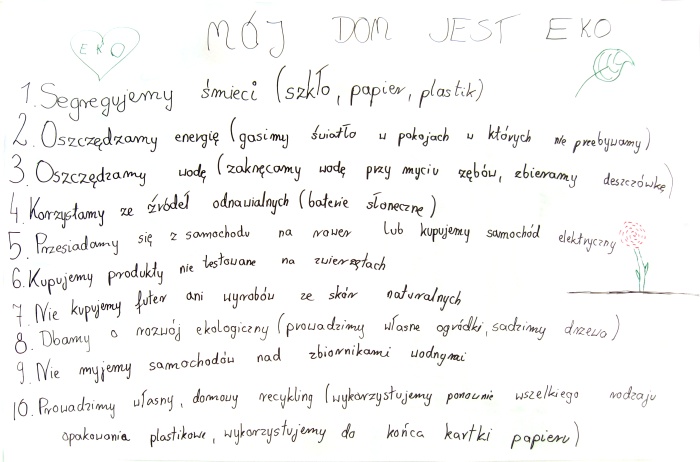 EKO
MÓJ DOM JEST EKO
1. Segregujemy śmieci (szkło, papier, plastik)
2. Oszczędzamy energię (gasimy światło w pokojach w których nie przebywamy)
3. Oszczędzamy wodę (zakręcamy wodę przy myciu zębów, zbieramy deszczówkę)
4. Korzystamy ze źródeł odnawialnych (baterie słoneczne)
5. Przesiadamy się z samochodu na rower lub kupujemy samochód elektryczny
6. Kupujemy produkty nie testowane na zwierzętach
7. Nie kupujemy futer ani wyrobów ze skór naturalnych
8. Dbamy o rozwój ekologiczny (prowadzimy własne ogródki, sadzimy drzewa)
9. Nie myjemy samochodów nad zbiornikami wodnymi
10. Prowadzimy własny, domowy recykling (wykorzystujemy ponownie wszelkiego rodzaju
opakowania plastikowe, wykorzystujemy do końca kartki papieru)